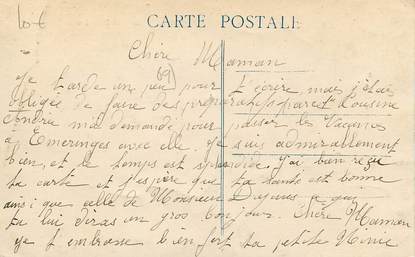 10 €
CARTE POSTALE
Chère Maman
69
Je tarde un peu pour t'écrire, mais j'étais
obligée de faire des préparatifs parcet Cousine
m'a demandé pour passer les Vacances
à Emeringes avec elle. Je suis admirablement
bien, et le temps est splendide. J'ai bien reçu
ta carte et j'espère que ta santé est bonne
ainsi que celle de Monsieur à qui
tu lui diras un gros bonjour. Chère Maman
je t'embrasse bien fort ta petite Ninie